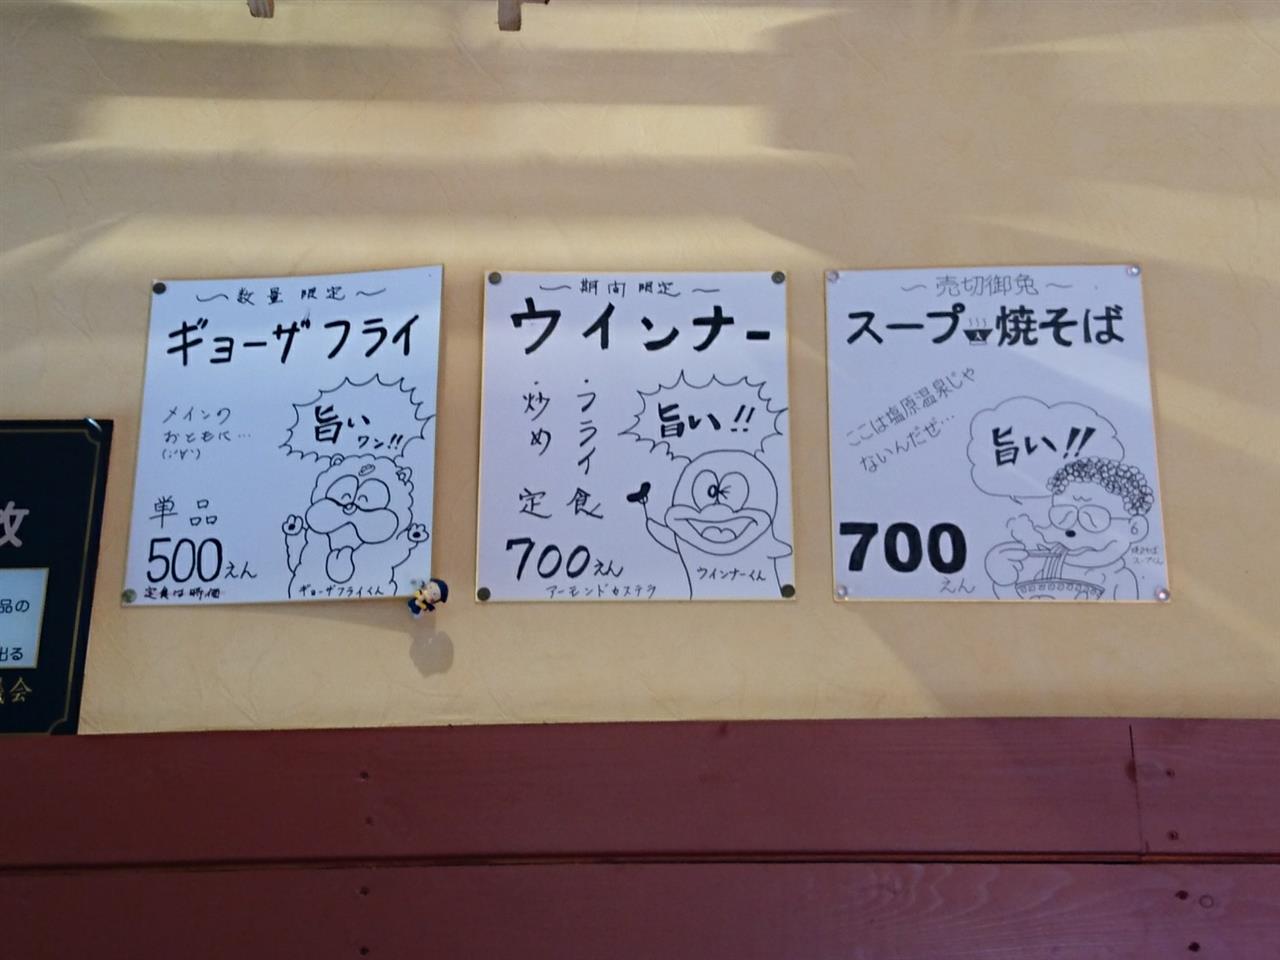 〜数量限定〜
ギョーザフライ
メインの
おともに…
(;'∀')
旨い
ワン!!
単品
500えん
定食は時価
ギョーザフライくん
〜期間限定〜
ウインナー
・フライ
・炒め
定食
旨い!!
700えん
ウインナーくん
アーモンドカステラ
〜売切御免〜
スープ焼そば
ここは塩原温泉じゃ
ないんだぜ…
旨い!!
700
えん
焼きそば
スープくん
品の
出る
会